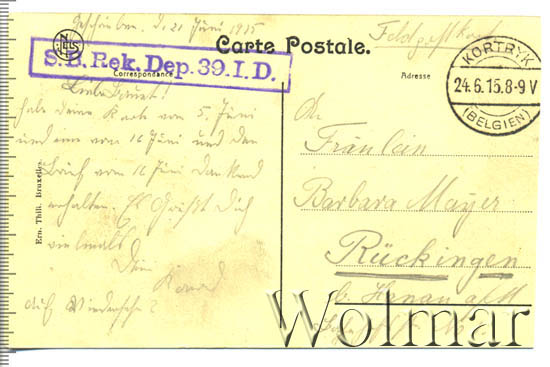 Geschrieben. d. 21 Juni 1915
Feldpostkarte
NELS
Carte Postale.
S.B. Rek. Dep. 39. I. D.
Correspondance
Adresse
KORTRYK
24.6.15.8-9 V
(BELGIEN)
Ern. Thill, Bruxelles.
habe deine Karte vom 5. Juni
und vom 16 Juni und den
Brief vom 16 Juni
erhalten. Es Grüßt Dich
vielmals
Dein
auf Wiedersehn
An
Fräulein
Barbara Mayer
Rückingen
b. Hanau a/M
Wolmar